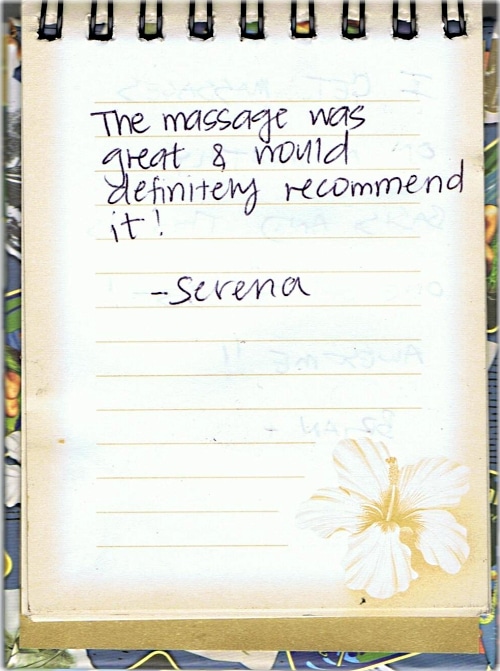 The massage was
great & would
definitely recommend
it!
-Serena